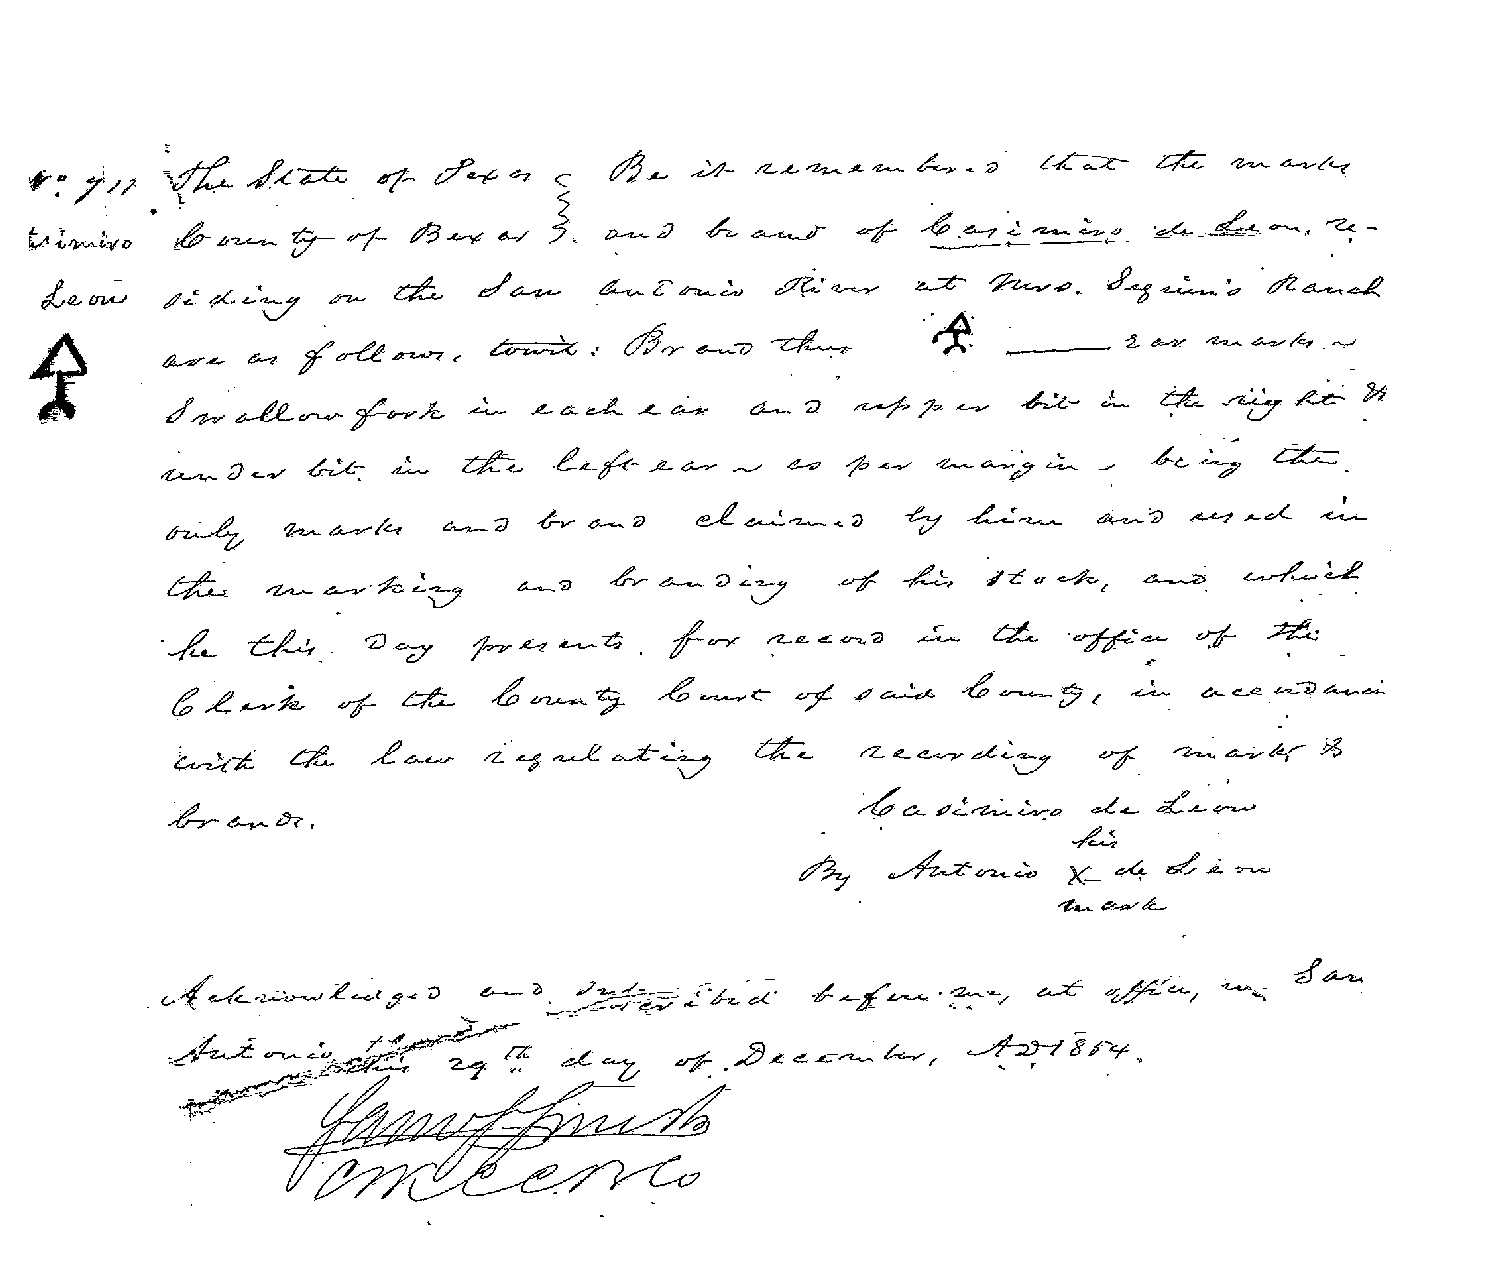 No 911 The State of Texas } Be it remembered that the marks
simiro County of Bexar }. and brand of Casimiro de Leon, re-
Leon siding on the San Antonio River at Mrs. Seguin's Ranch
are as follows, towit: Brand thus ____ ear marks ~
Swallow fork in each ear and upper bit in the right &
under bit in the left ear ~ as per margin, being the
only marks and brand claimed by him and used in
the marking and branding of his stock, and which
he this day presents for record in the office of the
Clerk of the County Court of said County, in accordance
with the law regulating the recording of marks &
brands.
Casimiro de Leon
his
By Antonio X de Leon
mark
Acknowledged and before me, at office, in San
Antonio this 29th day of December, AD 1854.
Sam S Smith